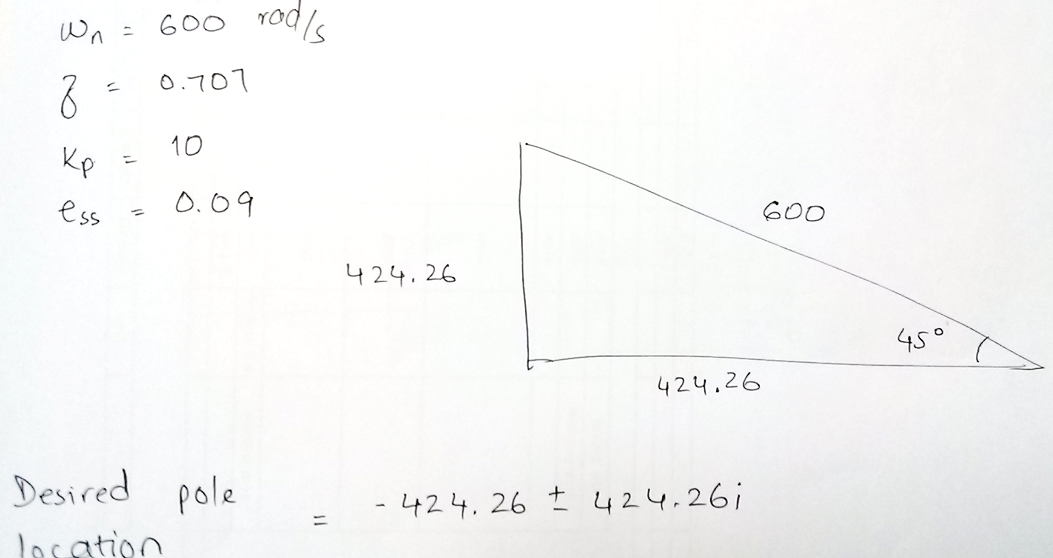 ωn = 600 rad/s
ζ = 0.707
Kp = 10
ess = 0.09
600
424.26
45°
424.26
Desired pole location = - 424.26 ± 424.26i